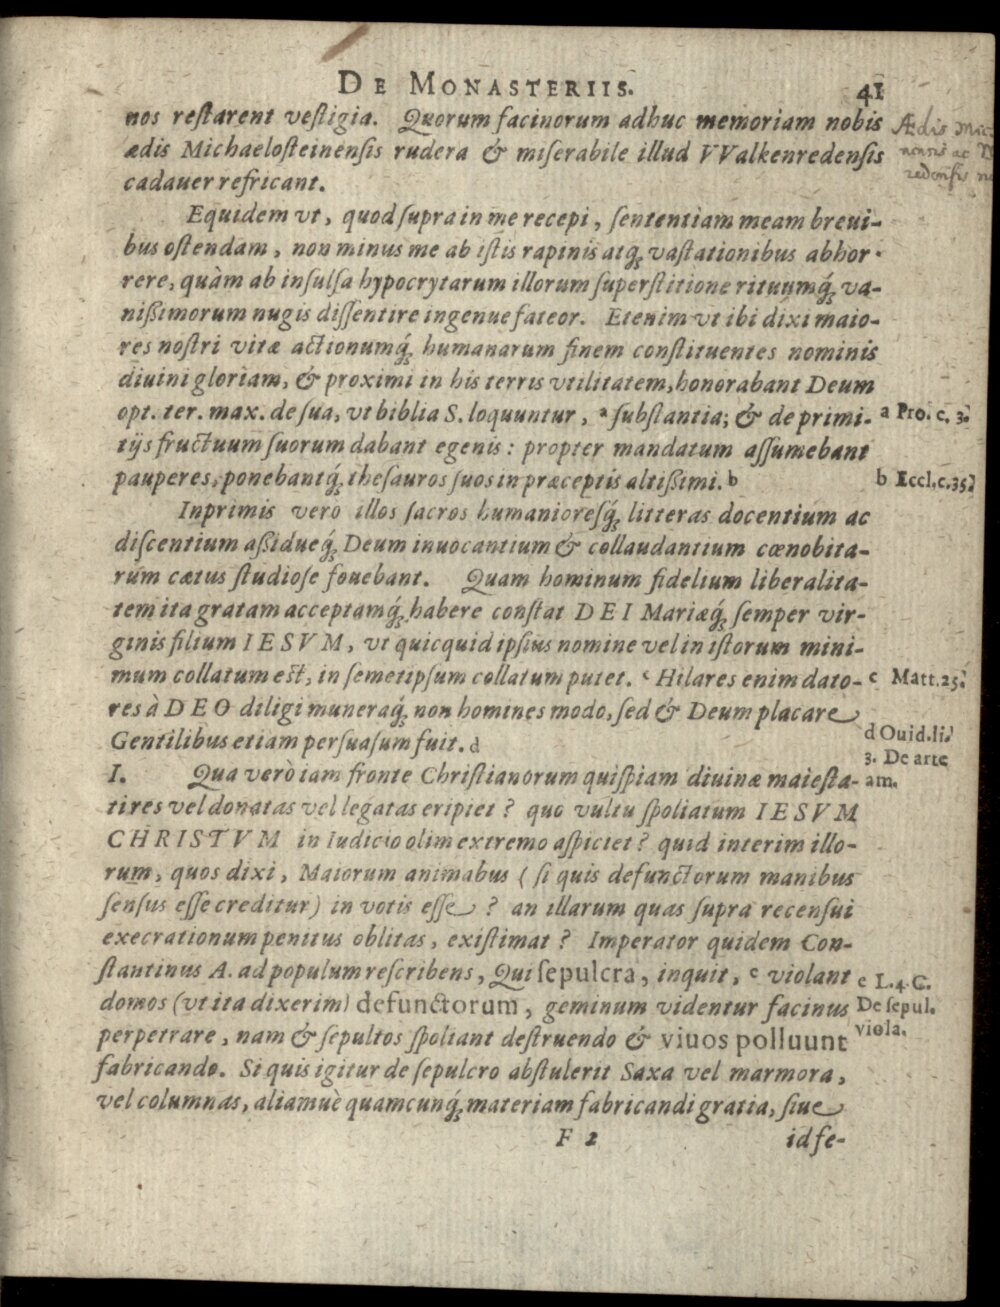 DE MONASTERIIS. 41
nos reſtarent veſtigia. Quorum facinorum adhuc memoriam nobis
ædis Michaeloſteinenſis rudera & miſerabile illud VValkenredenſis
cadauer refricant.
Ædis
nensis ac
redensis
Equidem vt, quod ſupra in me recepi, ſententiam meam breui-
bus oſtendam, non minus me ab iſtis rapinis atq́; vaſtationibus abhor-
rere, quàm ab inſulſa hypocrytarum illorum ſuperſtitione rituumq́; va-
nißimorum nugis diſſentire ingenue fateor. Etenim vt ibi dixi maio-
res noſtri vitæ actionumq́; humanarum finem conſtituentes nominis
diuini gloriam, & proximi in his terris vtilitatem, honorabant Deum
opt. ter. max. de ſua, vt biblia S. loquuntur, a ſubſtantia; & de primi-
a Pro. c. 3.
tijs fructuum ſuorum dabant egenis: propter mandatum aſſumebant
pauperes, ponebantq́; theſauros ſuos in præceptis altißimi. b
b Eccl. c. 35.
Inprimis vero illos ſacros humanioreſq́; litteras docentium ac
diſcentium aßidueq́; Deum inuocantium & collaudantium cœnobita-
rum cætus ſtudioſe fouebant. Quam hominum fidelium liberalita-
tem ita gratam acceptamq́; habere conſtat DEI Mariæq́; ſemper vir-
ginis filium IESVM, vt quicquid ipſius nomine vel in iſtorum mini-
mum collatum est, in ſemetipſum collatum putet. c Hilares enim dato-
c Matt. 25.
res à DEO diligi muneraq́; non homines modo, ſed & Deum placare
Gentilibus etiam perſuaſum fuit. d
d Ouid. li.
3. De arte
am.
I. Qua verò iam fronte Chriſtianorum quiſpiam diuinæ maieſta-
ti res vel donatas vel legatas eripiet? quo vultu ſpoliatum IESVM
CHRISTVM in Iudicio olim extremo aſpiciet? quid interim illo-
rum, quos dixi, Maiorum animabus (ſi quis defunctorum manibus
ſenſus eſſe creditur) in votis eſſe? an illarum quas ſupra recenſui
execrationum penitus oblitas, exiſtimat? Imperator quidem Con-
ſtantinus A. ad populum reſcribens, Qui ſepulcra, inquit, e violant
e L. 4. C.
De ſepul.
viola.
domos (vt ita dixerim) defunctorum, geminum videntur facinus
perpetrare, nam & ſepultos ſpoliant deſtruendo & viuos polluunt
fabricando. Si quis igitur de ſepulcro abſtulerit Saxa vel marmora,
vel columnas, aliamuè quamcunq́; materiam fabricandi gratia, ſiue
F 2 id fe-